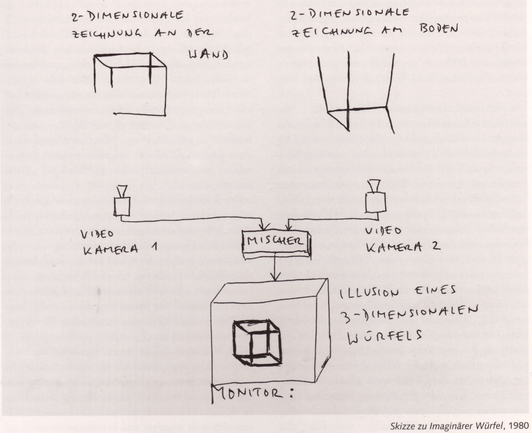 2-DIMENSIONALE
ZEICHNUNG AN DER
WAND
2-DIMENSIONALE
ZEICHNUNG AM BODEN
VIDEO
KAMERA 1
MISCHER
VIDEO
KAMERA 2
ILLUSION EINES
3-DIMENSIONALEN
WÜRFELS
MONITOR:
Skizze zu Imaginärer Würfel, 1980